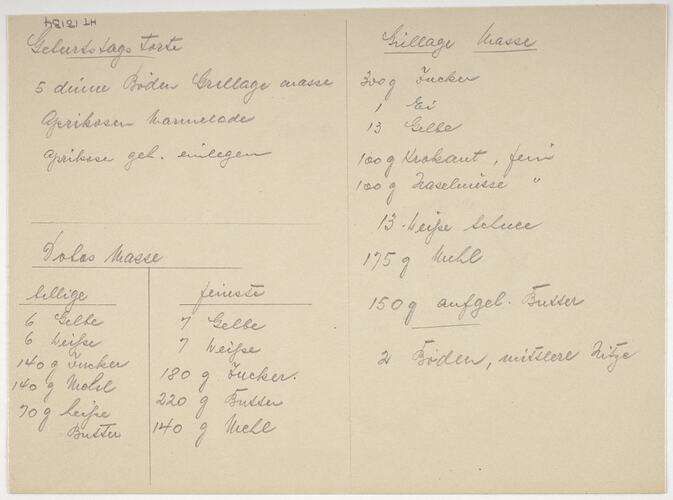 HT 18184
Geburtstags Torte
5 dünne Böden Grillage masse
Aprikosen Marmelade
Aprikose geh. einlegen
Dobos Masse
billige
6 Gelbe
6 Weiße
140 g Zucker
140 g Mehl
70 g heiße
Butter
feinste
7 Gelbe
7 Weiße
180 g Zucker.
220 g Butter
140 g Mehl
Grillage Masse
300 g Zucker
1 Ei
13 Gelbe
100 g Krokant, fein
100 g Haselnüsse "
13 Weiße Schnee
175 g Mehl
150 g aufgel. Butter
2 Böden, mittlere Hitze